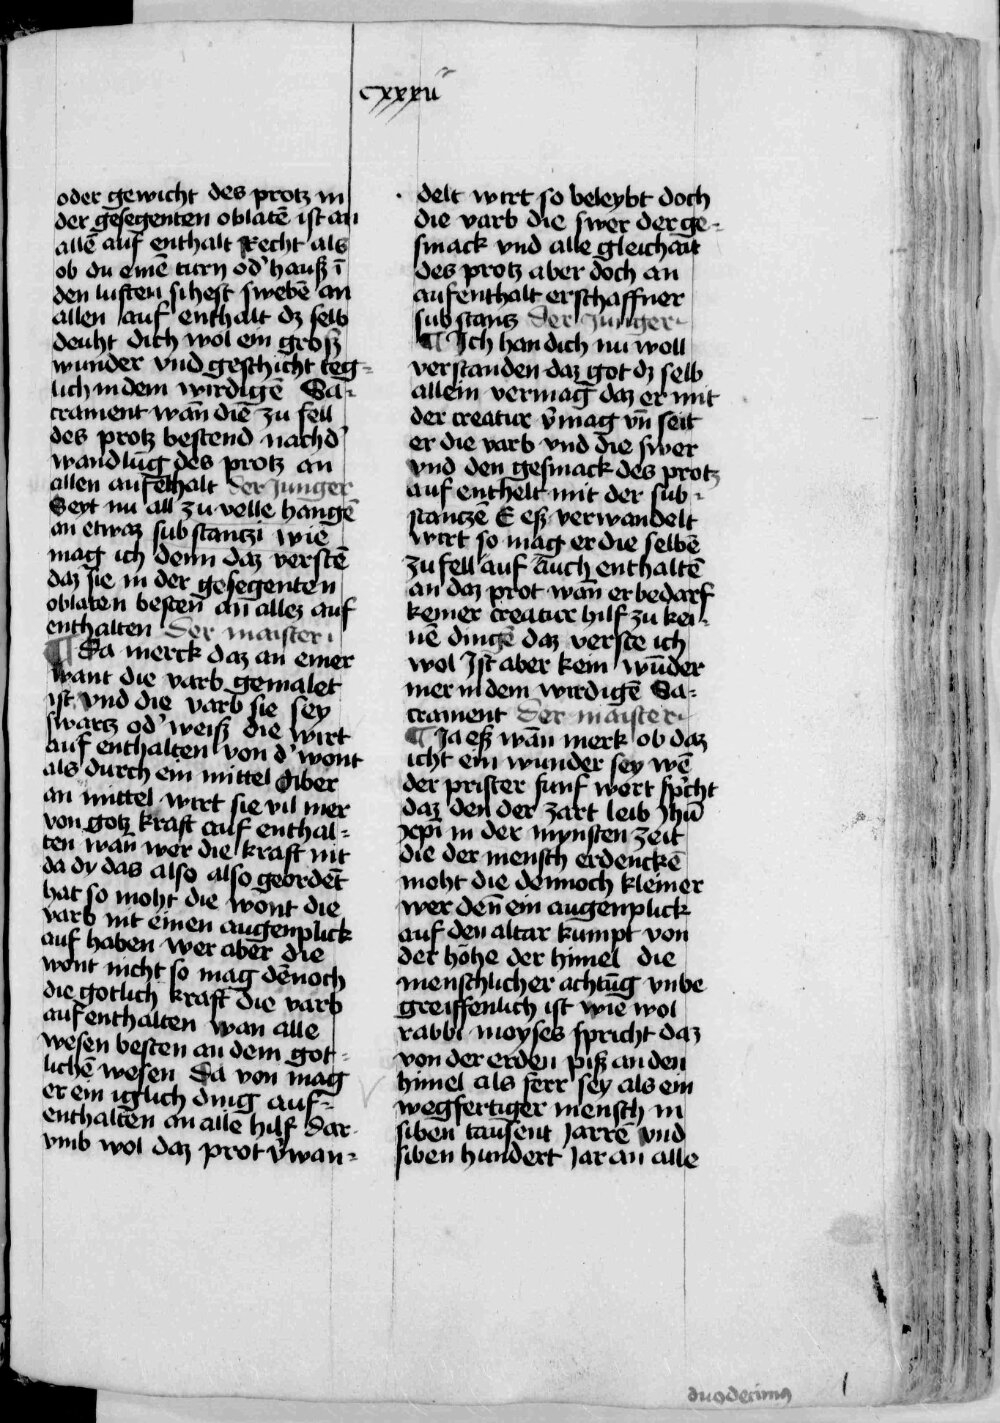 cxxxii
oder gewicht des protz in
der gesegenten oblatē ist an
allē auf enthalt Recht als
ob du einē turn od' hauß ī
den luften sihest swebē an
allen auf enthalt dz selb
deuht dich wol ein groß
wunder vnd geschicht teg-
lich in dem wirdigē Sa-
crament wān die zu fell
des protz bestend nach d'
wandlūg des protz an
allen aufēthalt Der Junger
Seyt nu all zu velle hangē
an etwaz substantzi wie
mag ich denn daz verstē
daz sie in der gesegenten
oblaten besten an allez auf
enthalten Der maister
¶ Da merck daz an einer
want die varb gemalet
ist vnd die varb sie sey
swartz od' weiß die wirt
auf enthalten von d' wont
als durch ein mittel Aber
an mittel wirt sie vil mer
von gotz kraft auf enthal-
ten wan wer die kraft nit
da dy das also also geordēt
hat so moht die wont die
varb nit einen augenplick
auf haben wer aber die
wont nicht so mag dēnoch
die gotlich kraft die varb
auf enthalten wan alle
wesen besten an dem got-
lichē wesen Da von mag
er ein iglich ding auf-
enthalten an alle hilf Dar
vmb wol daz prot v̄wan-
delt wirt so beleybt doch
die varb die swer der ge-
smack vnd alle gleichait
des protz aber doch an
aufenthalt erschaffner
substantz Der Junger
¶ Ich han dich nu woll
verstanden daz got dz selb
allein vermag daz er mit
der creatur v̄mag vn̄ seit
er die varb vnd die swer
vnd den gesmack des protz
auf enthelt mit der sub-
stantzē E eß verwandelt
wirt so mag er die selbē
zu fell auf auch enthaltē
an daz prot wan er bedarf
keiner creatur hilf zu kei-
nē dingē daz verste ich
wol Ist aber kein wūder
mer in dem wirdigē Sa-
crament Der maister
¶ Ja eß wān merk ob daz
icht ein wunder sey wē
der prister funf wort sp̄cht
daz den der zart leib Jhū
xp̄i in der mynsten zeit
die der mensch erdenckē
moht die dennoch kleiner
wer den̄ ein augenplick
auf den altar kumpt von
der höhe der himel die
menschlicher achtūg vnbe
greiffenlich ist wie wol
rabbi moyses spricht daz
von der erden piß an den
himel als ferr sey als ein
wegfertiger mensch in
siben tausent Jarrē vnd
siben hundert Jar an alle
duodecimus